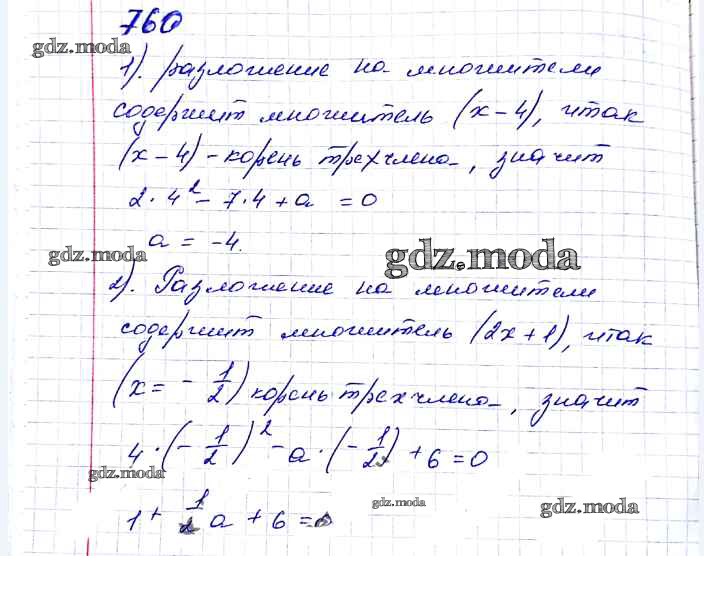 760
gdz.moda
1). разложение на множители
содержит множитель (x-4), итак
(x-4) - корень трехчлена, значит
2·4² - 7·4 + a = 0
a = -4.
gdz.moda
gdz.moda
2). Разложение на множители
содержит множитель (2x+1), итак
(x = - 1/2) корень трехчлена, значит
4·(- 1/2)² - a·(- 1/2) + 6 = 0
gdz.moda
gdz.moda
gdz.moda
1 + 1/2 a + 6 = 0